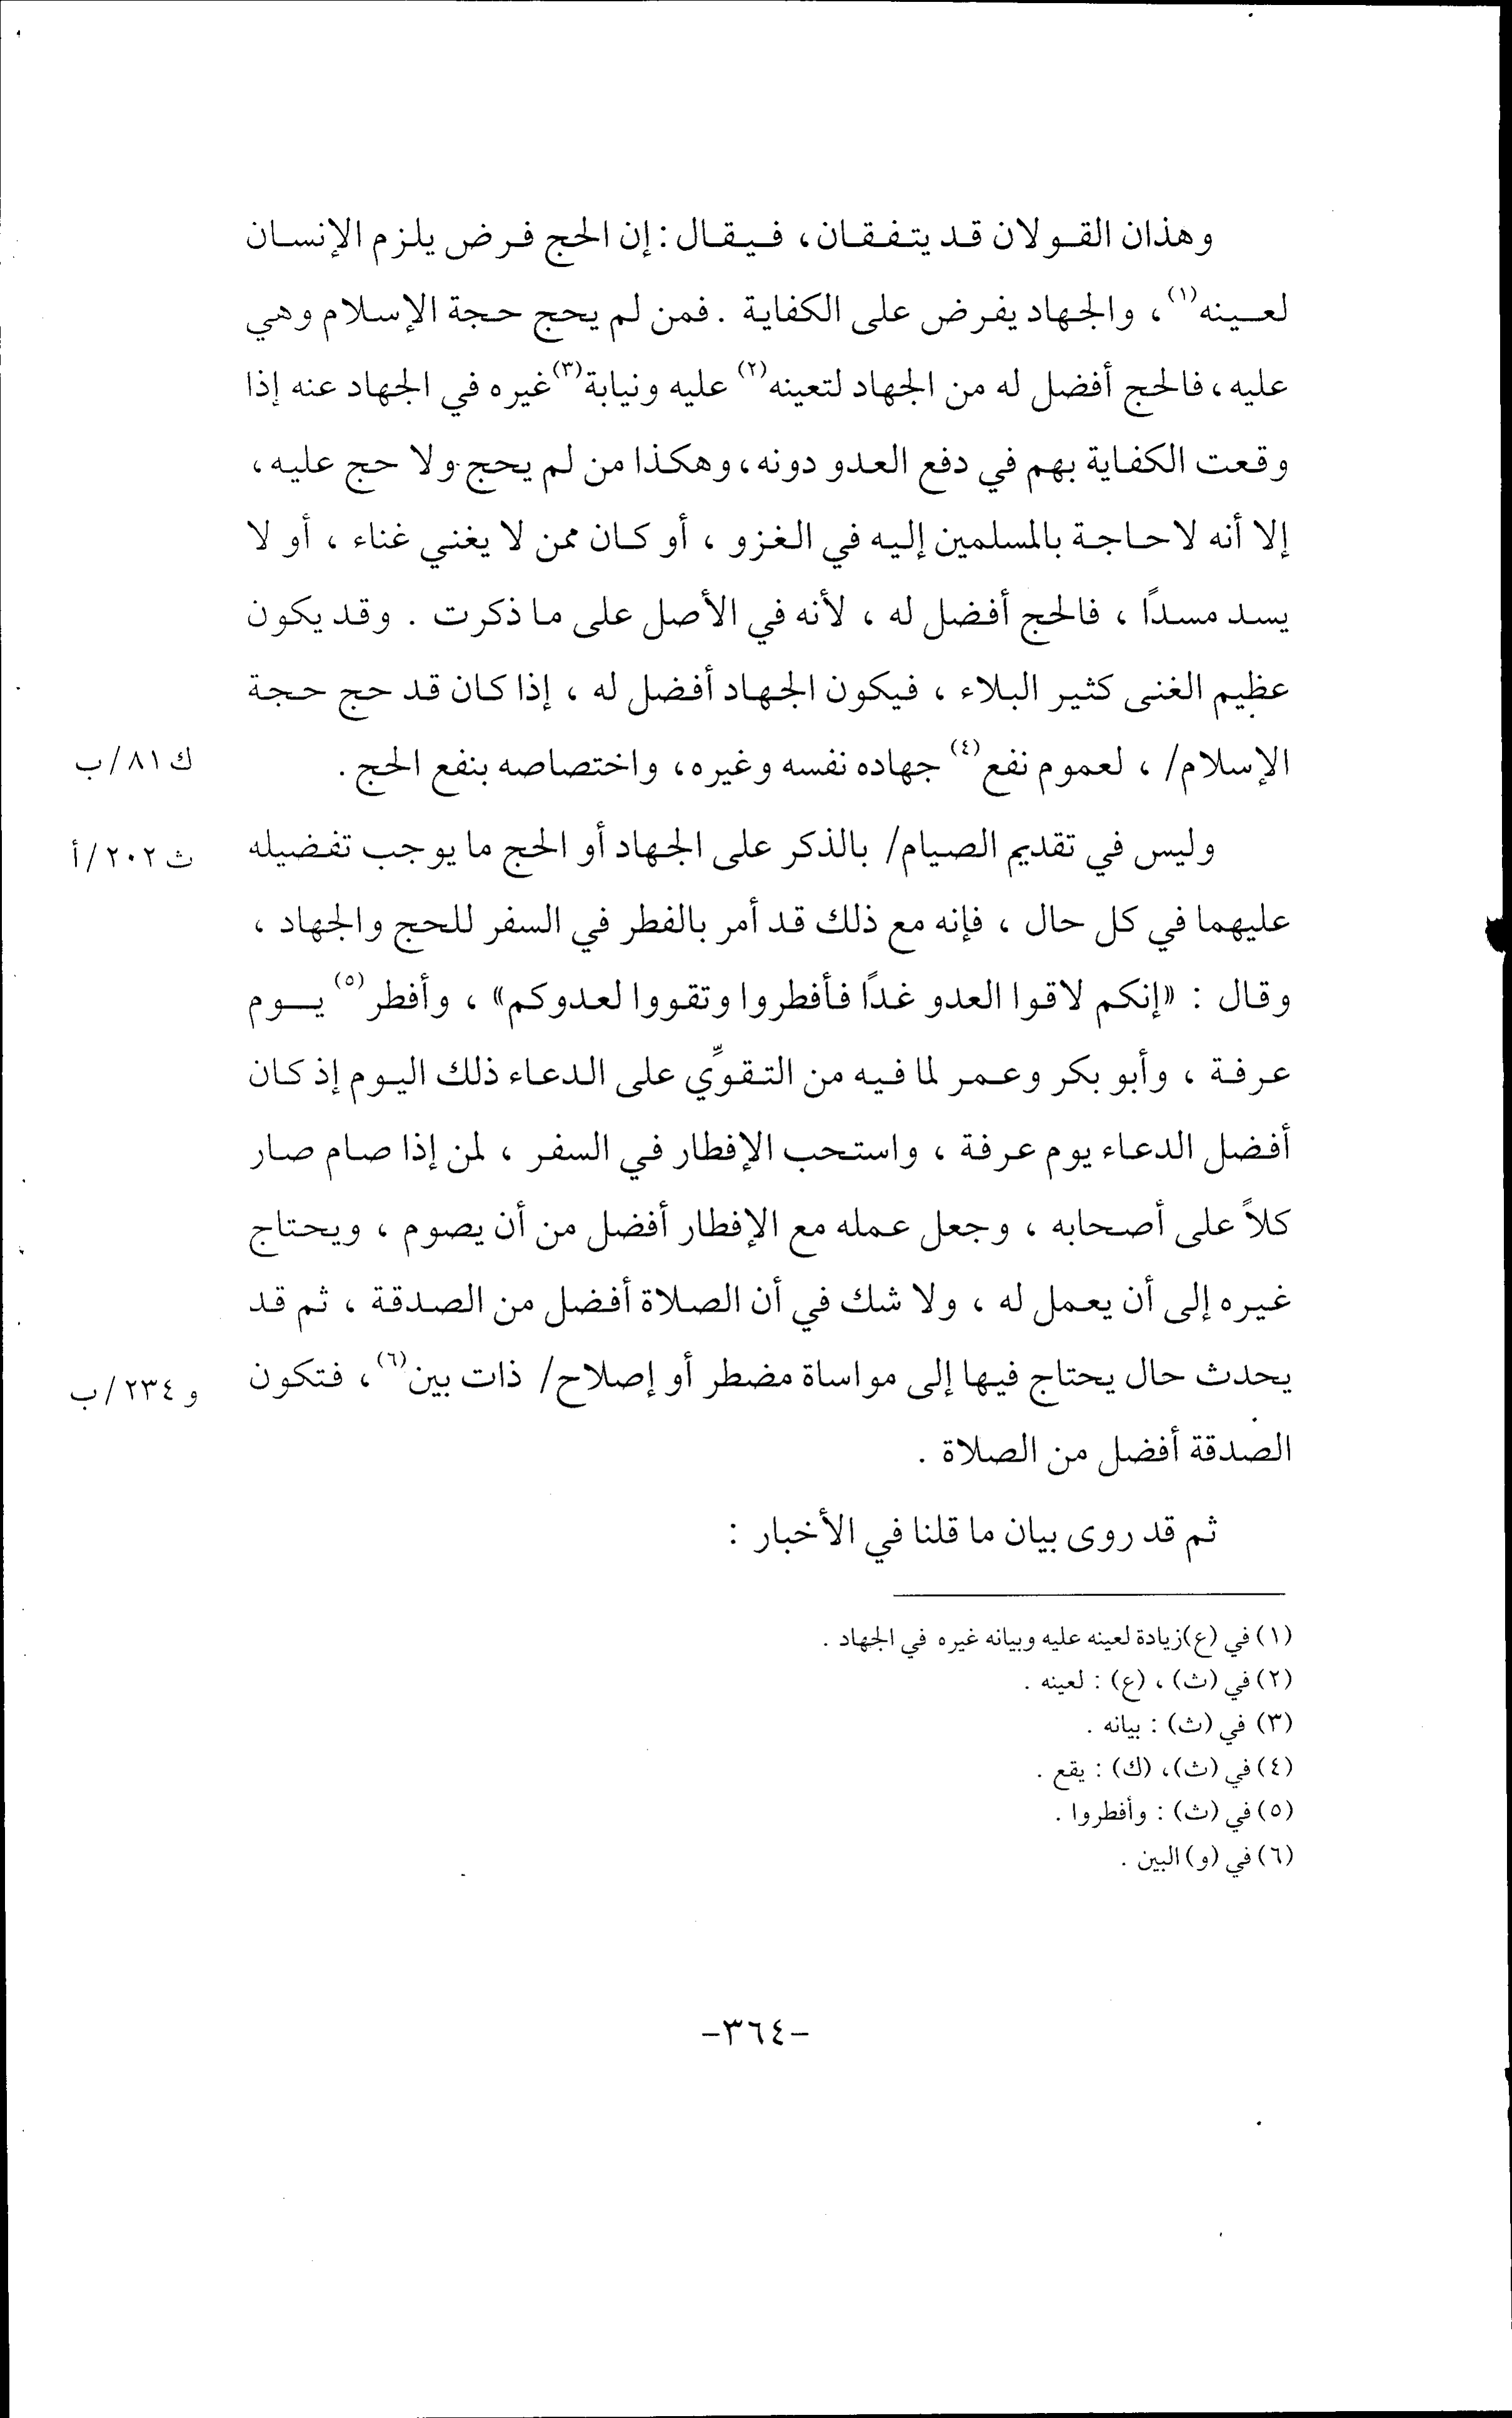 وهذان القولان قد يتفقان، فيقال: إن الحج فرض يلزم الإنسان
لعينه(١)، والجهاد يفرض على الكفاية . فمن لم يحج حجة الإسلام وهي
عليه، فالحج أفضل له من الجهاد لتعينه(٢) عليه ونيابة(٣) غيره في الجهاد عنه إذا
وقعت الكفاية بهم في دفع العدو دونه، وهكذا من لم يحج ولا حج عليه،
إلا أنه لا حاجة بالمسلمين إليه في الغزو ، أو كان ممن لا يغني غناء ، أو لا
يسد مسدًا ، فالحج أفضل له ، لأنه في الأصل على ما ذكرت . وقد يكون
عظيم الغنى كثير البلاء ، فيكون الجهاد أفضل له ، إذا كان قد حج حجة
الإسلام/ ، لعموم نفع(٤) جهاده نفسه وغيره، واختصاصه بنفع الحج .
ك ٨١/ب
وليس في تقديم الصيام/ بالذكر على الجهاد أو الحج ما يوجب تفضيله
ث ٢٠٢/أ
عليهما في كل حال ، فإنه مع ذلك قد أمر بالفطر في السفر للحج والجهاد ،
وقال : «إنكم لاقوا العدو غدًا فأفطروا وتقووا لعدوكم» ، وأفطر(٥) يوم
عرفة ، وأبو بكر وعمر لما فيه من التقوِّي على الدعاء ذلك اليوم إذ كان
أفضل الدعاء يوم عرفة ، واستحب الإفطار في السفر ، لمن إذا صام صار
كلاً على أصحابه ، وجعل عمله مع الإفطار أفضل من أن يصوم ، ويحتاج
غيره إلى أن يعمل له ، ولا شك في أن الصلاة أفضل من الصدقة ، ثم قد
يحدث حال يحتاج فيها إلى مواساة مضطر أو إصلاح/ ذات بين(٦)، فتكون
و ٢٣٤/ب
الصدقة أفضل من الصلاة .
ثم قد روى بيان ما قلنا في الأخبار :
(١) في (ع) زيادة لعينه عليه وبيانه غيره في الجهاد .
(٢) في (ث) ، (ع) : لعينه .
(٣) في (ث) : بيانه .
(٤) في (ث)، (ك) : يقع .
(٥) في (ث) : وأفطروا .
(٦) في (و) البين .
-٣٦٤-